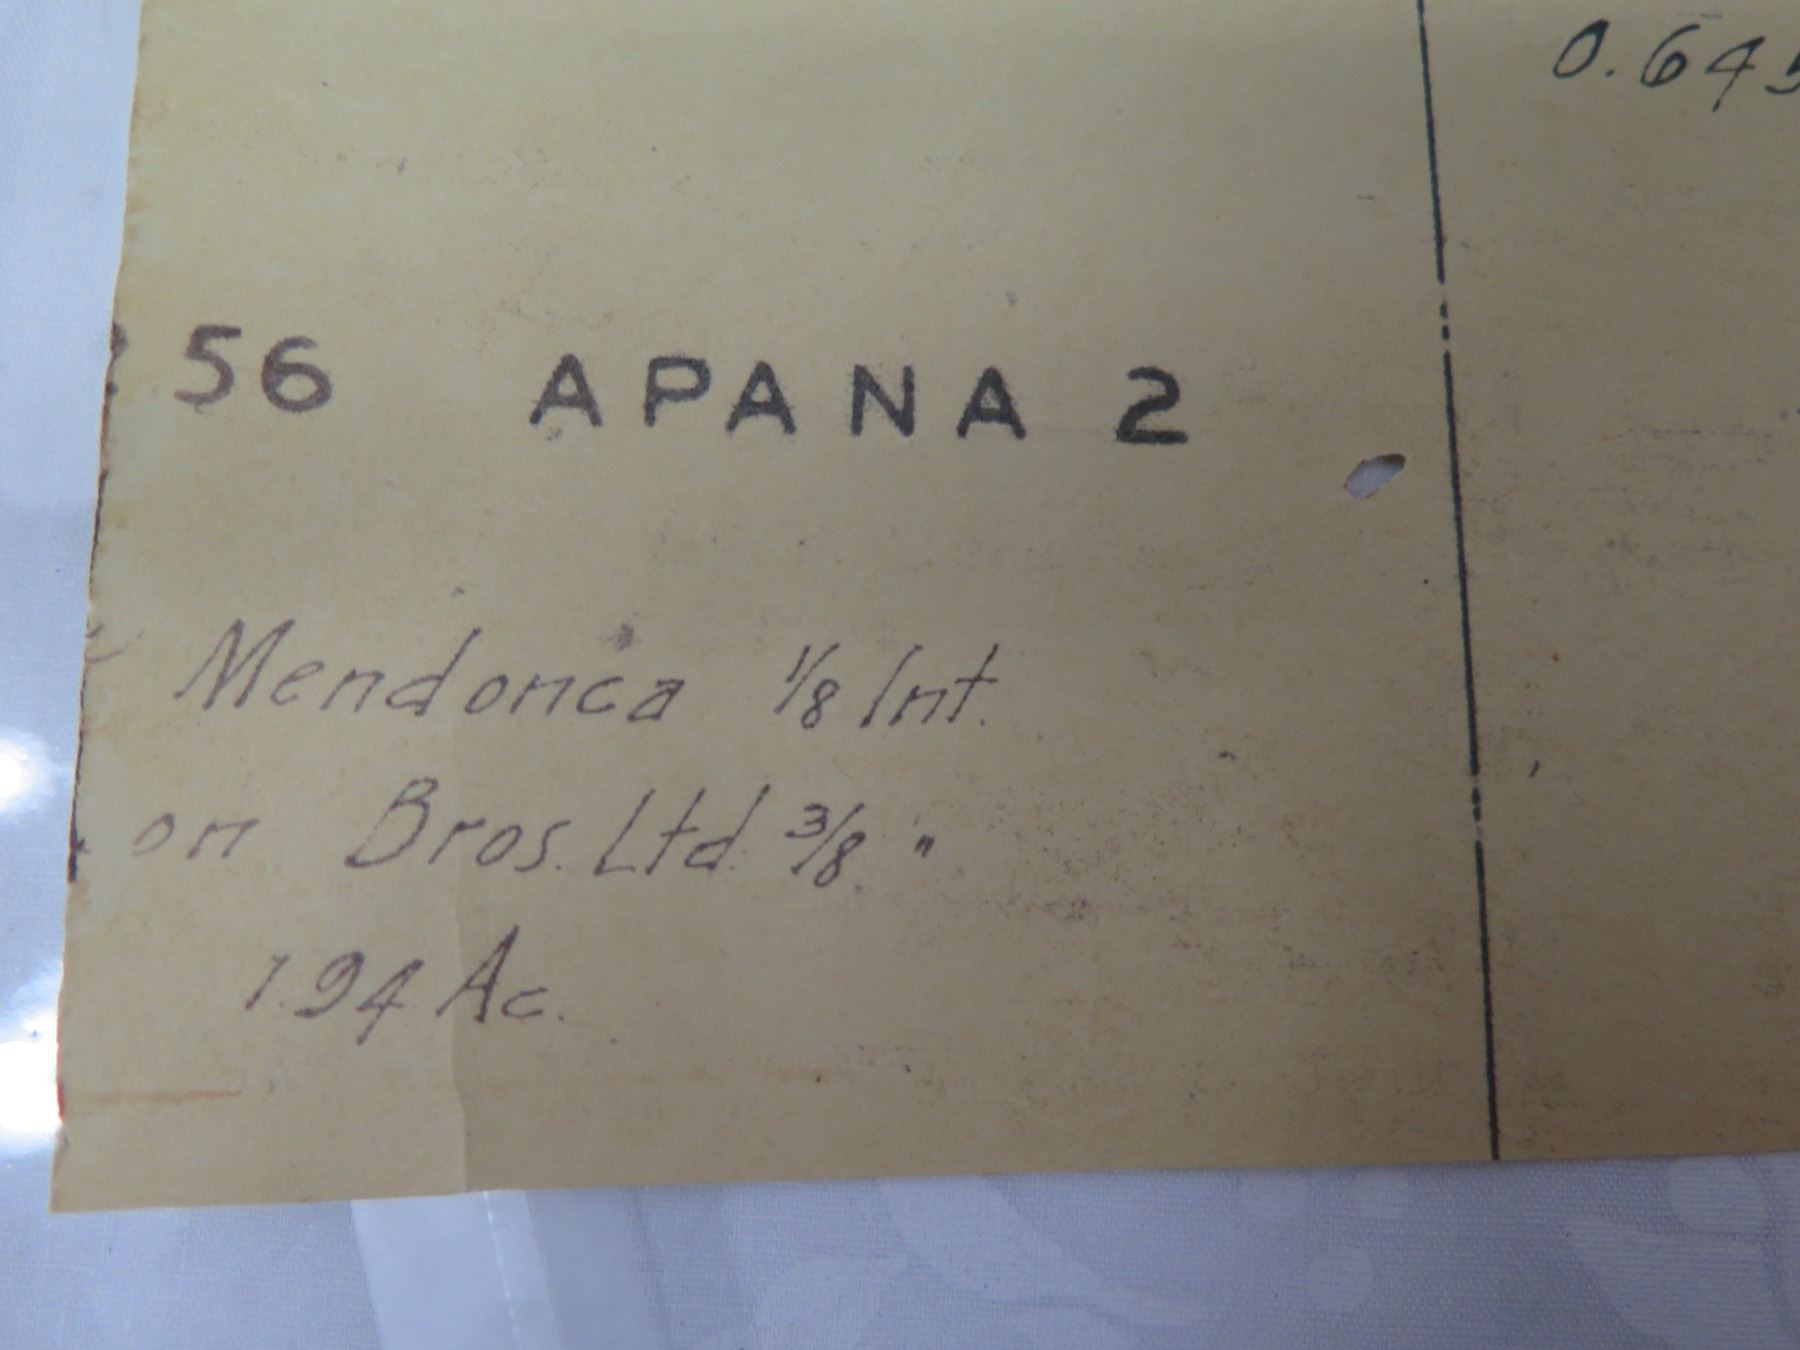 0.645
56 APANA 2
Mendonca 1/8 Int.
on Bros. Ltd. 3/8 "
1.94 Ac.